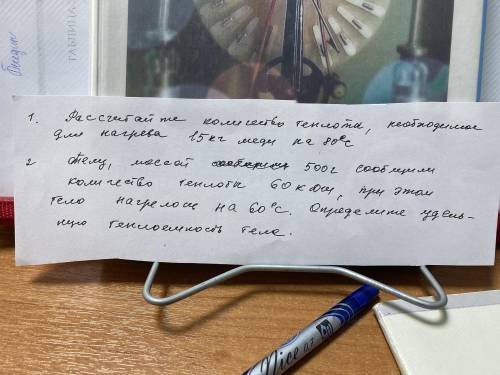 ТАБЛИЦА
1. Рассчитайте количество теплоты, необходимое
для нагрева 15кг меди на 80°С
2 Телу, массой 500г сообщили
количество теплоты 60 кДж, при этом
тело нагрелось на 60°С. Определите удель-
ную теплоемкость тела.
nice 0.7